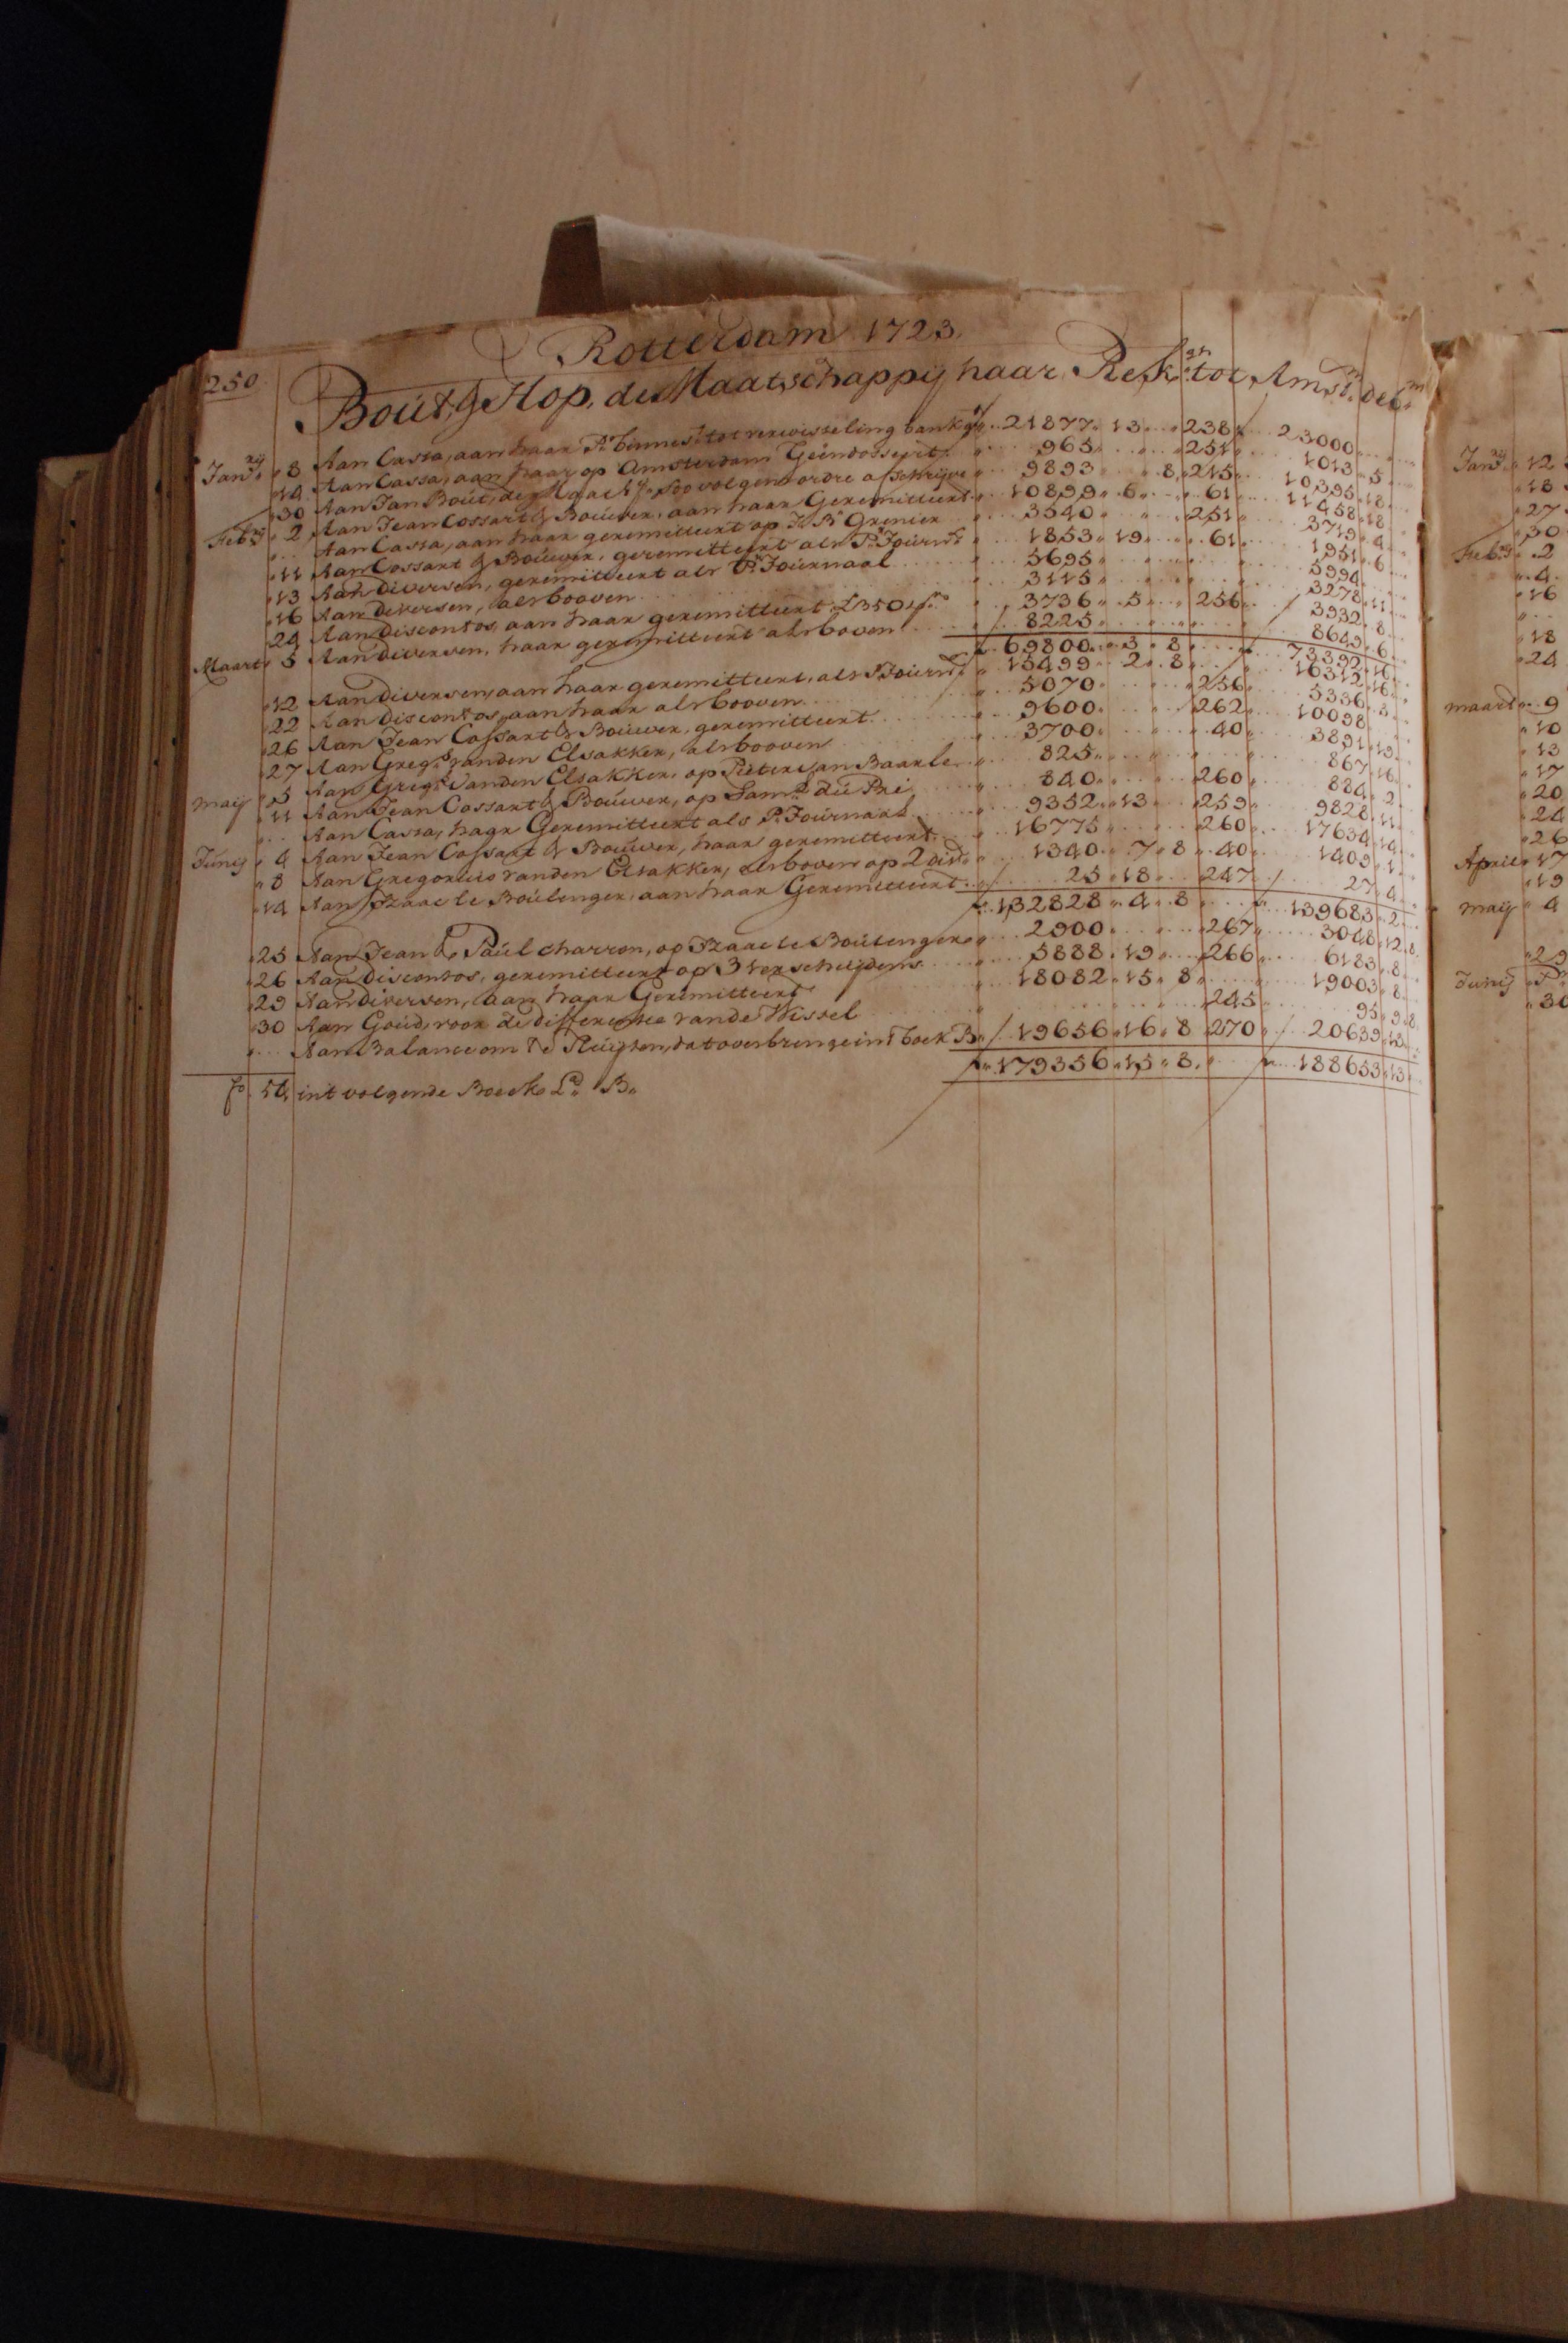 Rotterdam 1723.
250
Bout & Hop, de Maatschappij haar Rek.gn tot Amst.m deb.m
Jan.rij 8 Aan Cassa, aan haar tot verwisseling bank g.t 21877 13 238 23000
14 Aan Cassa, aan haar op Amsterdam Geindosseert 965 251 1013 5
30 Aan Jan Bout, de Maats.y soo volgens ordre afschrijve 9893 8 215 10395 18
Feb.rij 2 Aan Jean Cossart & Bouwer, aan haar Geremitteert 10899 6 61 11458 18
Aan Cassa, aan haar geremitteert op J. B. Grenier 3540 251 3719 4
11 Aan Cossart & Bouwer, geremitteert als P.r Journ.l 1853 19 61 1951 6
13 Aan diversen, geremitteert als P.r Journaal 5695 5994
16 Aan diversen, als booven 3115 3278 11
24 Aan discontos, aan haar geremitteert £ 350 3736 5 256 3932 8
Maart 5 Aan diversen, haar geremitteert als boven 8225 8649 6
69800 3 8 73392 16
12 Aan diversen, aan haar geremitteert, als P. Journ.l 15499 2 8 16312 16
22 Aan discontos, aan haar als booven 5070 256 5336 3
26 Aan Jean Cossart & Bouwer, geremitteert 9600 262 10098
27 Aan Greg.s vanden Elsakker, als booven 3700 40 3891 19
maij 5 Aan Greg.s Vanden Elsakker, op Pieter van Baarle 825 867 16
11 Aan Jean Cossart & Bouwer, op Sam.l du Pri 840 260 884 2
Aan Cassa, haar Geremitteert als P.r Journaal 9352 13 259 9828 11
Junij 4 Aan Jean Cossart & Bouwer, haar geremitteert 16775 260 17634 14
8 Aan Gregorius vanden Elsakker, als boven op 2 div.s 1340 7 8 40 1409 1
14 Aan Izaac le Boulenger, aan haar Geremitteert 25 18 247 27 4
132828 4 8 139683 2
25 Aan Jean & Paul Charron, op Izaac le Boulenger 2900 267 3048 12 8
26 Aan discontos, geremitteert op 3 verscheijdens 5888 19 266 6183 8
29 Aan diversen, aan haar Geremitteert 18082 15 8 19003 8
30 Aan Goud, voor de differentie vande Wissel 245 95 9 8
Aan Balance om te Sluijten, dat overbrenge int boek B 19656 16 8 270 20639 13
179356 15 8 188653 13
f.o 54 int volgende Boeck L.a B
Jan.rij 12
18
27
30
Feb.rij 2
4
16
18
24
maart 9
10
13
17
20
24
26
April 17
19
maij 4
29
Junij
30